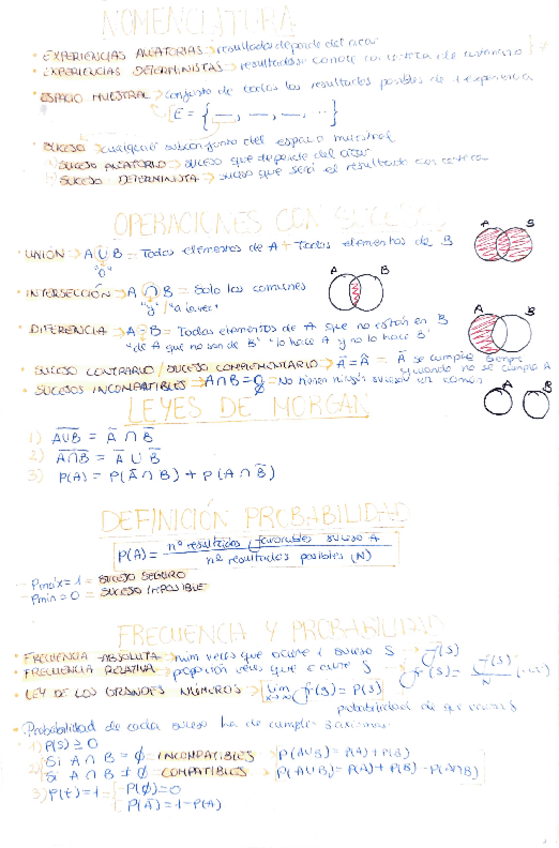 NOMENCLATURA
• EXPERIENCIAS ALEATORIAS → resultados depende del azar
• EXPERIENCIAS DETERMINISTAS → resultados se conoce con certeza de antemano
• ESPACIO MUESTRAL → conjunto de todos los resultados posibles de 1 experiencia
E = {—, —, —, ...}
• SUCESO → cualquier subconjunto del espacio muestral
SUCESO ALEATORIO → suceso que depende del azar
SUCESO DETERMINISTA → suceso que será el resultado con certeza
OPERACIONES CON SUCESOS
• UNIÓN → A ∪ B = Todos elementos de A + Todos elementos de B
"o"
A B
• INTERSECCIÓN → A ∩ B = Solo los comunes
"y" / "a la vez"
A B
• DIFERENCIA → A - B = Todos elementos de A que no están en B
"de A que no son de B" "lo hace A y no lo hace B"
A B
• SUCESO CONTRARIO / SUCESO COMPLEMENTARIO → Ā = Â = Ā se cumple siempre y cuando no se cumple A
• SUCESOS INCOMPATIBLES → A ∩ B = ∅ = No tienen ningún suceso en común
A B
LEYES DE MORGAN
1) A̅U̅B̅ = Ā ∩ B̄
2) A̅∩̅B̅ = Ā ∪ B̄
3) P(A) = P(Ā ∩ B) + P(A ∩ B̄)
DEFINICIÓN PROBABILIDAD
P(A) = nº resultados favorables suceso A / nº resultados posibles (N)
- Pmáx = 1 = SUCESO SEGURO
- Pmin = 0 = SUCESO IMPOSIBLE
FRECUENCIA Y PROBABILIDAD
• FRECUENCIA ABSOLUTA → núm veces que ocurre 1 suceso S → f(S)
• FRECUENCIA RELATIVA → proporción veces que ocurre S → fr(S) = f(S) / N
• LEY DE LOS GRANDES NÚMEROS → lim fr(S) = P(S)
probabilidad de que
• Probabilidad de cada suceso ha de cumplir
1) P(S) ≥ 0
2) Si A ∩ B = ∅ = INCOMPATIBLES → P(A∪B) = P(A) + P(B)
Si A ∩ B ≠ ∅ = COMPATIBLES → P(A∪B) = P(A) + P(B) - P(A∩B)
3) P(E) = 1 = - P(∅) = 0
P(Ā) = 1 - P(A)